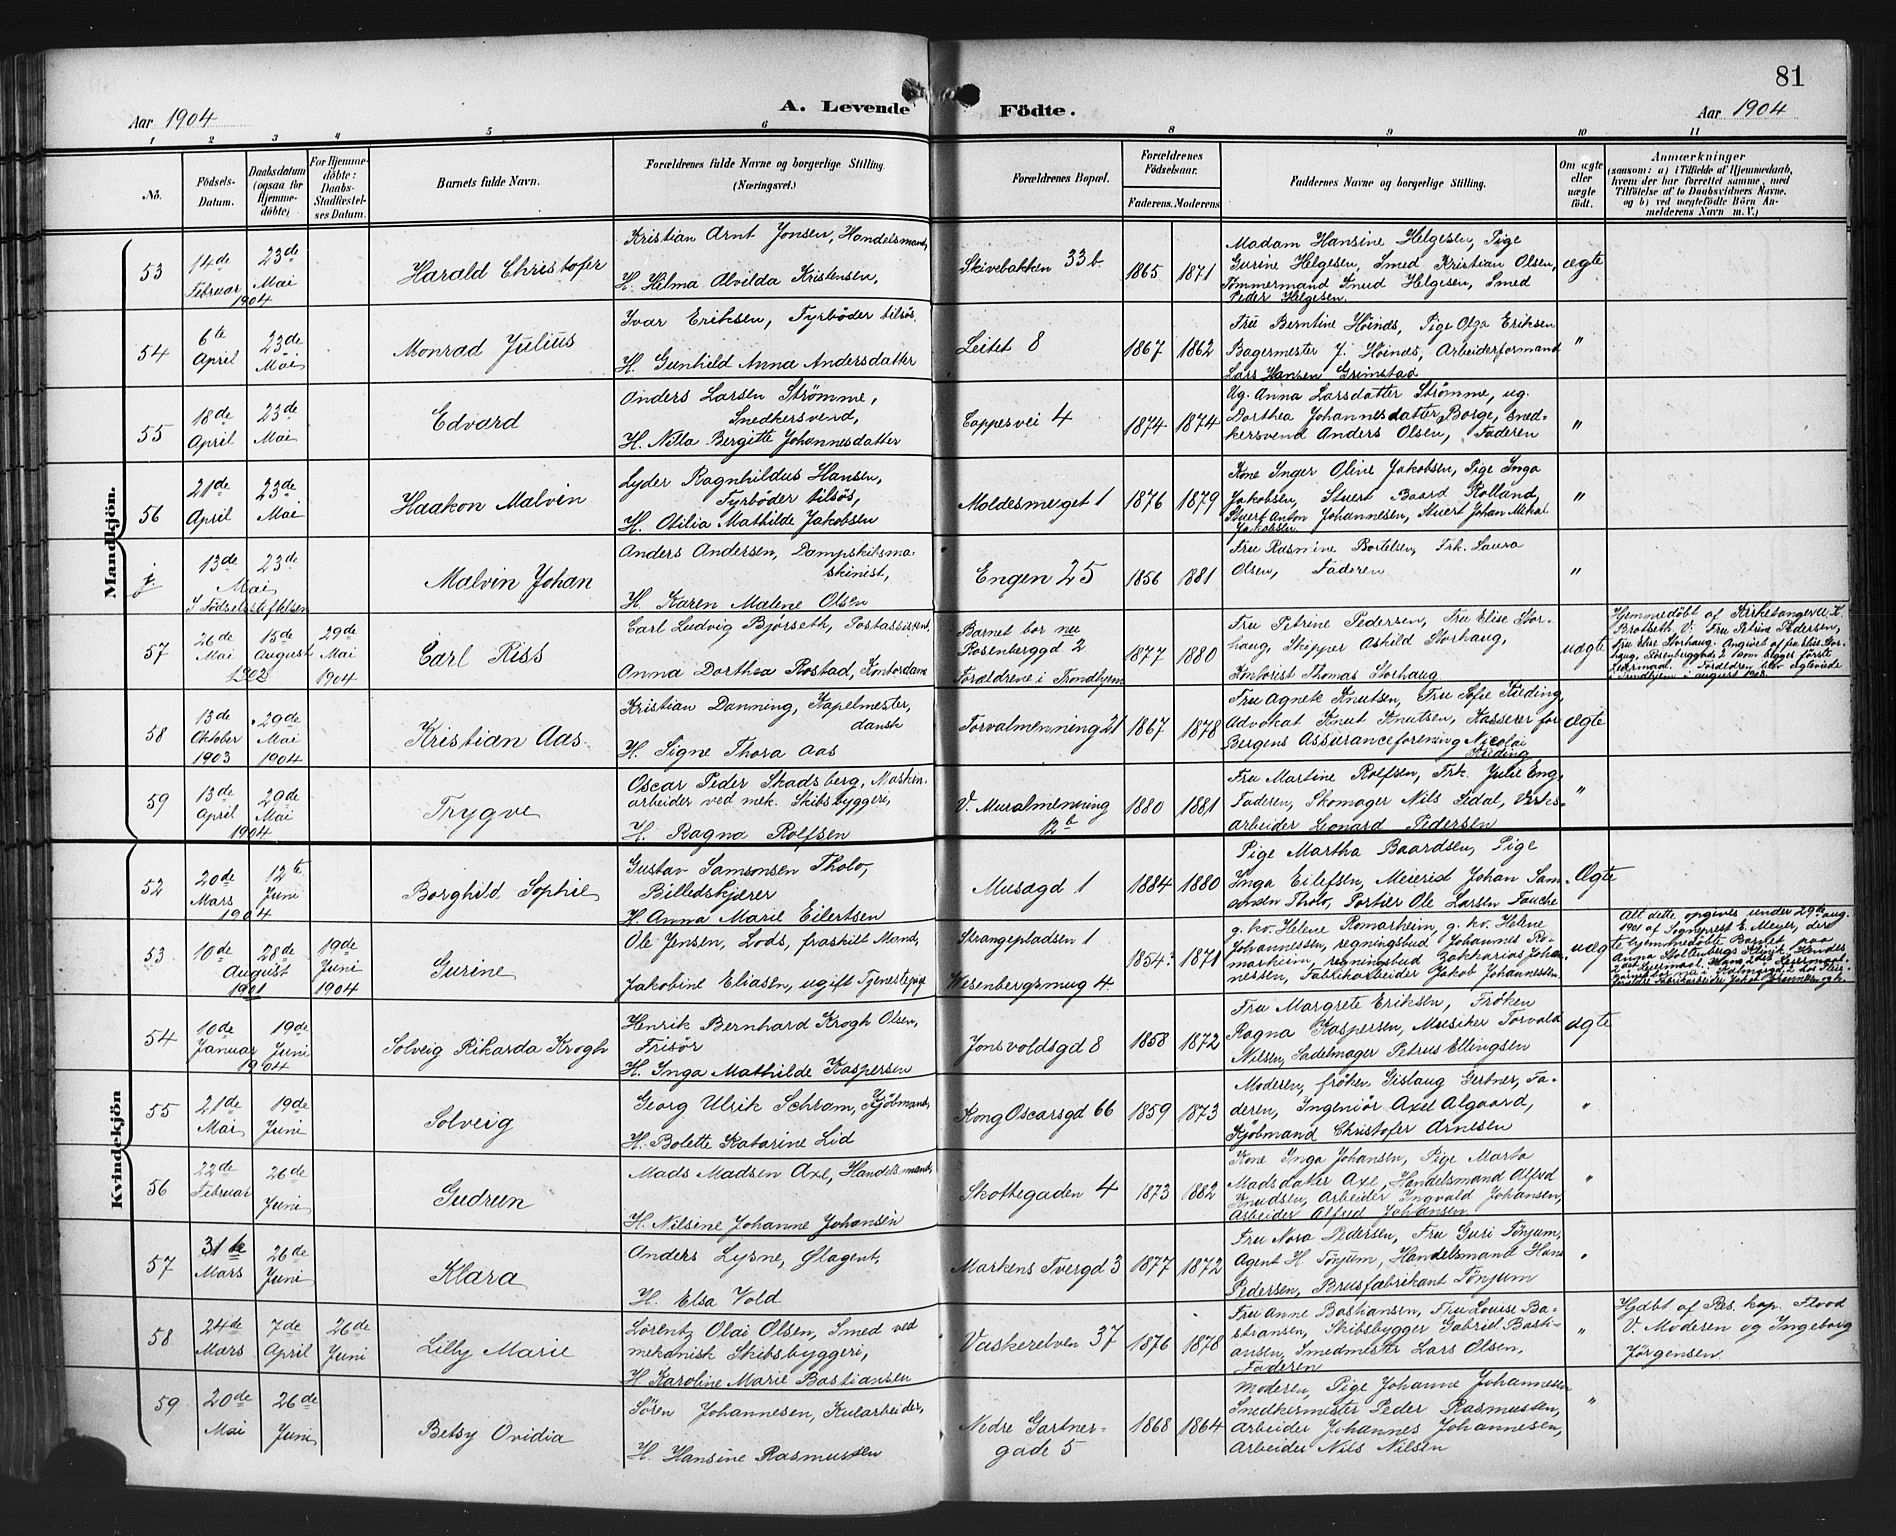 81
Aar 1904
A. Levende Födte.
Aar 1904
1 2 3 4 5 6 8 9 10 11
No.
Födsels-Datum.
Daabsdatum (ogsaa for Hjemme-döbte)
For Hjemme-döbte: Daabs-Stadfæstel-ses Datum.
Barnets fulde Navn.
Forældrenes fulde Navne og borgerlige Stilling. (Næringsvei.)
Forældrenes Bopæl.
Forældrenes Födselsaar.
Faderens. Moderens
Faddernes Navne og borgerlige Stilling.
Om ægte eller uægte födt.
Anmærkninger
(saasom: a) i Tilfælde af Hjemmedaab, hvem der har forrettet samme, med Tilföielse af to Daabsvidners Navne, og b) ved uægtefödte Börn An-melderens Navn m. V.)
Mandkjön.
53
14de Februar 1904
23de Mai
Harald Christofer
Kristian Arnt Jonsen, Handelsmand,
H. Hilma Alvilda Kristensen,
Skivebakken 33b.
1865 1871
Madam Hansine Helgesen, Pige
Gurine Helgesen, Smed Kristian Olsen,
Tömmermand Knud Helgesen, Smed
Peder Helgesen.
ægte
54
6te April
23de Mai
Monrad Julius
Ivar Eriksen, Fyrböder tilsös.
H. Gunhild Anna Andersdatter
Leitet 8
1867 1862
Fru Berntine Höinds, Pige Olga Eriksen
Bagermester J. Höinds, Arbeiderformand
Lars Hansen Grimstad
"
55
18de April
23de Mai
Edvard
Anders Larsen Strömme,
Snedkersvend,
H. Nilla Bergitte Johannesdatter
Cappesvei 4
1874 1874
Ug. Anna Larsdatter Strömme, ug.
Dorthea Johannesdatter Borge, Sned-
kersvend Anders Olsen, Faderen
"
56
21de April
23de Mai
Haakon Malvin
Lyder Ragnhildus Hansen,
Fyrböder tilsös,
H. Otilia Mathilde Jakobsen
Moldesmuget 1
1876 1879
Kone Inger Oline Jakobsen, Pige Inga
Jakobsen, Stuert Baard Rolland,
Stuert Anton Johannesen, Stuert Johan Mikal
Jakobsen
"
13de
23de
Mai
I Födselsstiftelsen
Malvin Johan
Anders Andersen, Dampskibsma-
skinist,
H. Karen Malene Olsen
Engen 25
1856 1881
Fru Rasmine Bortelsen, Frk. Laura
Olsen, Faderen
"
57
26de Mai
15de August
1902
29de Mai 1904
Carl Riss
Carl Ludvig Bjørseth, Postassistent,
Anna Dorthea Rostad, Kontordame
Barnet bor nu
Rosenberggd 2
Forældrene i Trondhjem
1877 1880
Fru Petrine Pedersen, Fru Elise Stor-
haug, Skipper Askild Storhaug,
Kontorist Thomas Storhaug
uægte
Hjemmedöbt af Kirkesanger
Brotseth. V: Fru Petrine Pedersen,
fru Elise Storhaug. Angivet af fru Elise Stor-
haug, Rosenberggade 2 som begges förste
Leiermaal. Forældren blev ægteviede
i Trondhjem i august 1902.
58
13de Oktober 1903
29de Mai 1904
Kristian Aas
Kristian Danning, Kapelmester,
dansk
H. Signe Thora Aas
Torvalmenning 21
1867 1878
Fru Agnete Knutsen, Fru Sofie Kieding,
Advokat Knut Knutsen, Kasserer for
Bergens Assuranceforening Nicolai
Kieding
ægte
59
13de April
29de Mai
1904
Trygve
Oscar Peder Skadsberg, Maskin-
arbeider ved mek. Skibsbyggeri,
H. Ragna Rolfsen
V. Muralmenning
12b
1880 1881
Fru Martine Rolfsen, Frk. Julie Eng,
Faderen, Skomager Nils Sedal, Verks-
arbeider Leonard Pedersen
"
Kvindekjön
52
20de Mars
12te Juni
1904
Borghild Sophie
Gustav Samsonsen Tholo,
Billedskjærer
H. Anna Marie Eilertsen
Musægd 1
1884 1880
Pige Martha Baardsen, Pige
Inga Eilefsen, Meierid Johan Sam-
sonsen Tholo, Portier Ole Larsen Fauche
Ægte
53
10de
28de
August
1901
19de Juni 1904
Gurine
Ole Jensen, Lods, fraskilt Mand,
Jakobine Eliasen, ugift Tjenestepige
Strangepladsen 1
Wesenbergsmug 4.
1854? 1871
g. kv. Helene Romarheim, g. kv. Helene
Johannessen, regningsbud Johannes Ro-
marheim, regningsbud Zakkarias Johan-
nessen, Fabrikarbeider Jakob Johannesen
uægte
Alt dette opgives under 29de aug.
1901 af Sogneprest E. Meyer, der
hjemmedöbte Barnet paa
54
10de Januar
19de Juni
1904
Solveig Rikarda Krogh
Henrik Bernhard Krogh Olsen,
Frisör
H. Inga Mathilde Kaspersen
Jonsvoldsgd 8
1858 1872
Fru Margrete Eriksen, Fröken
Ragna Kaspersen, Musiker Torvald
Nilsen, Sadelmager Petrus Ellingsen
ægte
55
21de Mai
19de Juni
Solveig
Georg Ulrik Schram, Kjöbmand,
H. Bolette Katarine Lid
Kong Oscarsgd 66
1859 1873
Moderen, fröken Gislaug Gertner, Fa-
deren, Ingeniör Axel Algaard,
Kjöbmand Christofer Arnesen
"
56
22de Februar
26de Juni
Gudrun
Mads Madsen Axe, Handelsmand,
H. Nilsine Johanne Johansen
Skottegaden 4
1873 1882
Kone Inga Johansen, Pige Marta
Madsdatter Axe, Handelsmand Alfred
Knudsen, Arbeider Ingvald Johansen,
Arbeider Alfred Johansen
"
57
31te Mars
26de Juni
Klara
Anders Lysne, Ølagent,
H. Elsa Vold
Markens Tvergd 3
1877 1872
Fru Nora Pedersen, Fru Guri Tönjum,
Agent H. Tönjum, Handelsmand Hans
Pedersen, Brusfabrikant Tönjum
"
58
24de Mars
7de April
26de Juni
Lilly Marie
Lorentz Olai Olsen, Smed ved
mekanisk Skibsbyggeri,
H. Karoline Marie Bastiansen
Vaskerelven 37
1876 1878
Fru Anne Bastiansen, Fru Louise Ba-
stiansen, Skibsbygger Gabriel Basti-
ansen, Smedmester Lars Olsen,
Faderen
"
Hjdbt af Res. kap. Flood
V. Moderen og Ingeborg
Jörgensen.
59
20de Mai
26de Juni
Betsy Ovidia
Sören Johannesen, Kularbeider,
H. Hansine Rasmussen
Nedre Gartner-
gade 5
1868 1864
Moderen, Pige Johanne Johannessen
Snedkermester Peder Rasmussen,
Arbeider Johannes Johannesen,
Arbeider Nils Nilsen
"